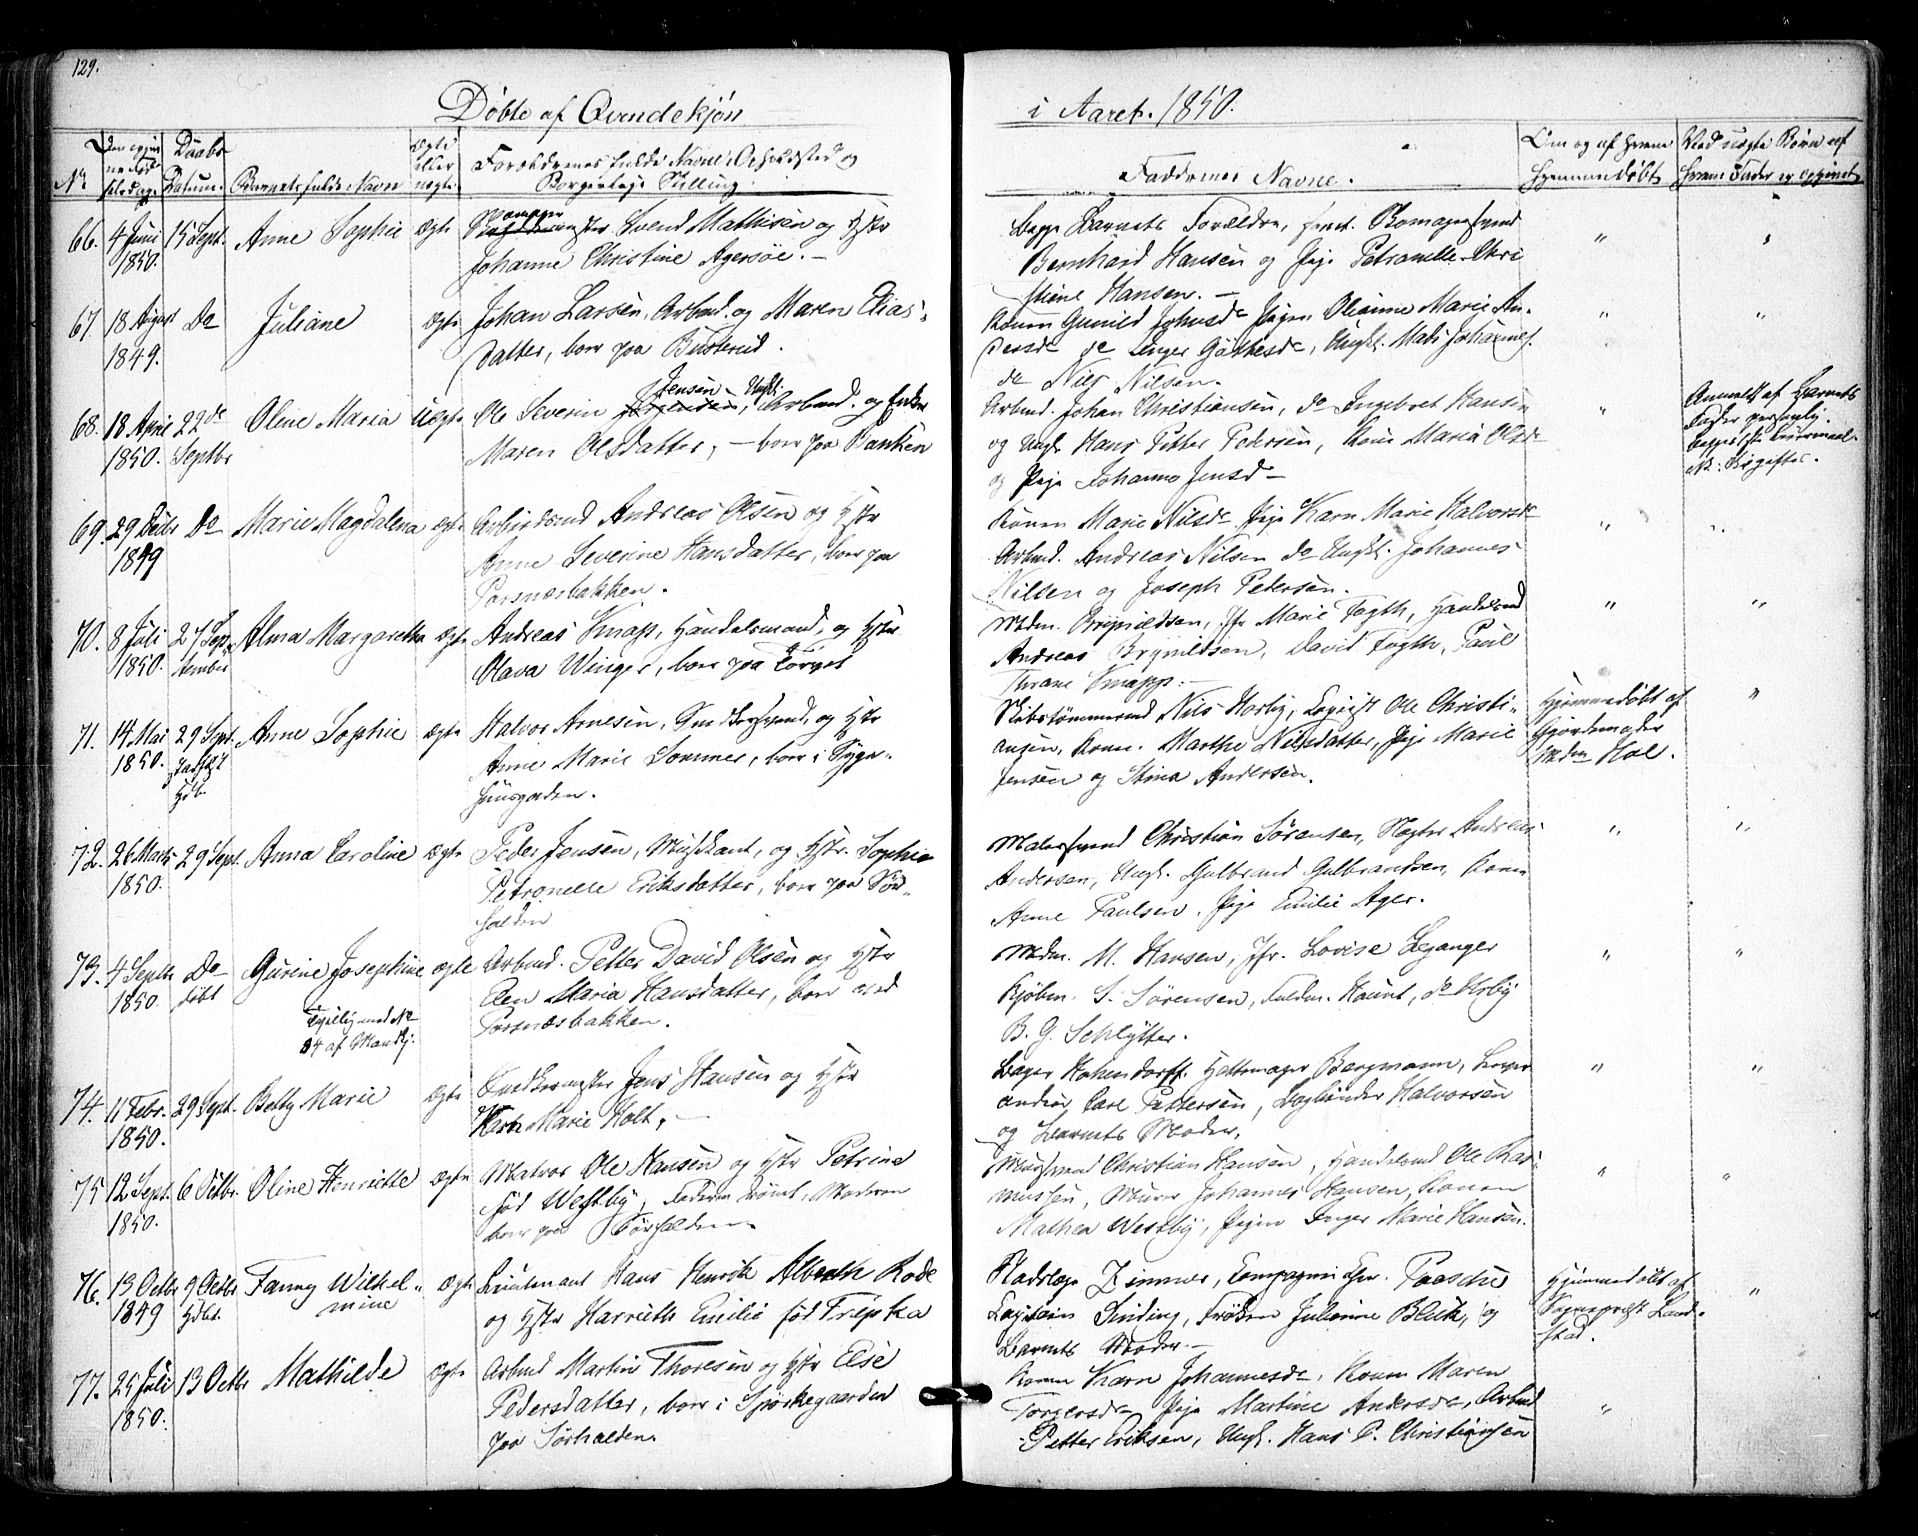 129.
Døbte af Qvindekjøn
i Aaret 1850.
No
Daabs Datum
Barnets fulde Navn
ægte eller uægte
Forældrenes fulde Navne, Opholdsted og
Borgerlige Stilling
Faddernes Navne.
Om og af hvem
hjemmedøbt
Ved uægte Børn af
hvem Fader er opgivet
66. 4 Juni 1850. 15 Sept. Anne Sophie ægte
Svend Mathisen og Hstr
Johanne Christine Agersöe. -
Begge Barnets Forældre,
Bernhard Hansen og Pige Petronelle Chri
stine Hansen. -
67. 18 August 1849. Do Juliane ægte
Johan Larsen, Arbmd. og Maren Elias-
datter, boer paa Busterud.
Konen Gunild Johnsdr Pigen Oleanne Marie An-
dersdr do Inger Gottesdr, Ungk. Mads Johannes.
do Nils Nilsen.
68. 18 April 1850. 22de Septbr Oline Maria Uægte
Ole Severin Jensen, Ungk. Arbmd. og Enke
Maren Olsdatter, - boer paa Banken
Arbmd. Johan Christiansen, do Ingebret Hansen
og Ungk Hans Petter Pedersen, Kone Maria Olsdr
og Pige Johanne Jensdr
Anmeldt af Barnets
Fader personlig
69. 29 Decbr 1849 Do Marie Magdalena ægte
Arbeidsmd Andreas Olsen og Hstr
Anne Severine Hansdatter, boer paa
Porsnæsbakken.
Konen Marie Nilsdr Pige Karn Marie Halvorsdr
Arbmd. Andreas Nilsen do Ungk. Johannes
Nilsen og Joseph Petersen.
70. 8 Juli 1850. 27 September Alma Margaretha ægte
Andreas Knap, Handelsmand, og Hstr
Olava Winger, boer paa Torvet
Mdm. Brynildsen, Jfr Marie Fogth, Handelsmd
Andreas Brynildsen, David Fogth, Paul
Thrane Knapp. -
71. 14 Mai 1850. 29 Sept. Anne Sophie ægte
Halvor Arnesen, Snedkersvend, og Hstr
Anne Marie Sommer, boer i Syge-
huusgaarden.
Skibstömmermd Nils Horby, Logist Ole Christi-
ansen, Konn. Marthe Nilsdatter, Pige Marie
Jensen og Stina Andersen.
Hjemmedøbt af
Gjordemoder
Mdm Hol.
72. 26 Marts 1850. 29 Sept. Anna Caroline ægte
Peder Jensen, Musikant, og Hstr. Sophie
Petronelle Eriksdatter, boer paa Sør-
halden
Malersvend Christian Sörensen, Andreas
Andersen, Ungk. Gulbrand Gulbrandsen, Konen
Anne Paulsen, Pige Emilie Ager.
73. 4 Septbr 1850. Do døbt Gurine Josephine ægte
Tvillig med No
34 af Mandkj.
Arbmd. Petter David Olsen og Hstr
Elen Maria Hansdatter, boer ved
Porsnæsbakken.
Mdm. M. Hansen, Jfr. Lovise Leganger
Kjøbm. S. Sörensen, Fuldm. Haunt, do Urby
B. G. Schlytter.
74. 11 Febr. 1850. 29 Sept. Betty Marie ægte
Snedkermester Jens Hansen og Hstr
Karn Marie Holt, -
Bager Hohendorff, Hattemager Bergmann,
Carl Pettersen, Bogbinder Halvorsen
og Barnets Moder.
75 12 Sept. 1850. 6 Octbr. Oline Henriette ægte
Matros Ole Hansen og Hstr Petrine
fød Westby, Faderen römt, Moderen
boer paa Sørhalden
Muursvend Christian Hansen, Handelsmd Ole Ras-
mussen, Murer Johannes Hansen, Konen
Mathea Westby, Pigen Inger Marie Hansen.
76. 13 Octbr 1849 9 Octbr Hdbt. Fanny Wilhel-
mine ægte
Lieutenant Hans Henrik Albreth Rode
og Hstr Harrieth Emilie fød Trepka
Stadslæge Zimmer, Compagnie Paaschi
Capitain Sinding, Frøken Julianne Blick, og
Barnets Moder. -
Hjemmedöbt af
Sogneprest Land-
stad.
77. 25 Juli 1850. 13 Octbr Mathilde ægte
Arbmd Martin Thoresen og Hstr Else
Pedersdatter, boer i Spörkegaarden
paa Sørhalden.
Konen Karn Johannesdr, Konen Maren
Torgersdr Pige Martine Andersdr, Arbmd
Petter Eriksen, Ungk. Hans P. Christiansen